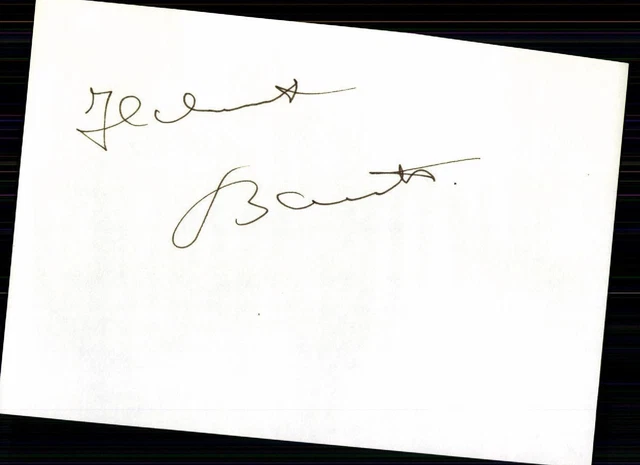 Helmut
Bantz.